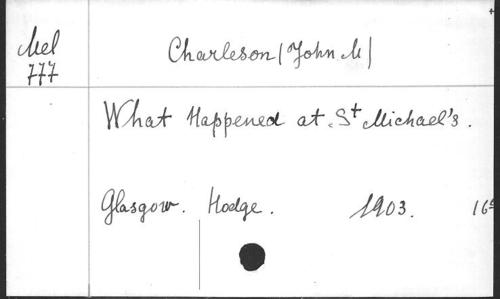 Mel
777
Charleson (John M)
What Happened at St Michael's.
Glasgow. Hodge. 1903. 16º